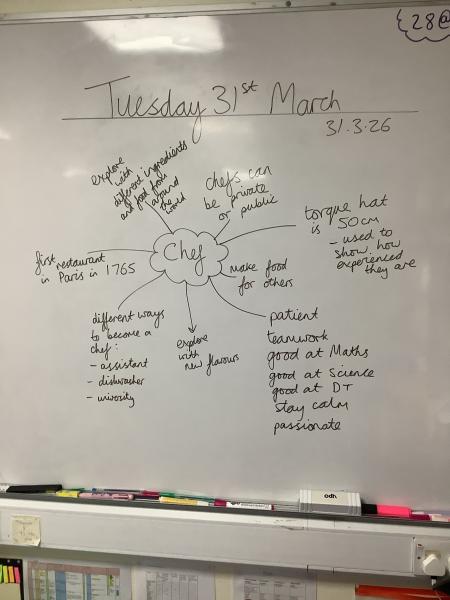 28@
Tuesday 31st March
31.3.26
explore
with
different ingredients
and food from
around
the
world
chefs can
be private
or public
torque hat
is 50cm
- used to
show how
experienced
they are
first restaurant
in Paris in 1765
Chef
make food
for others
different ways
to become a
chef:
- assistant
- dishwasher
- univosity
explore
with
new flavours
patient
teamwork
good at Maths
good at Science
good at DT
stay calm
passionate